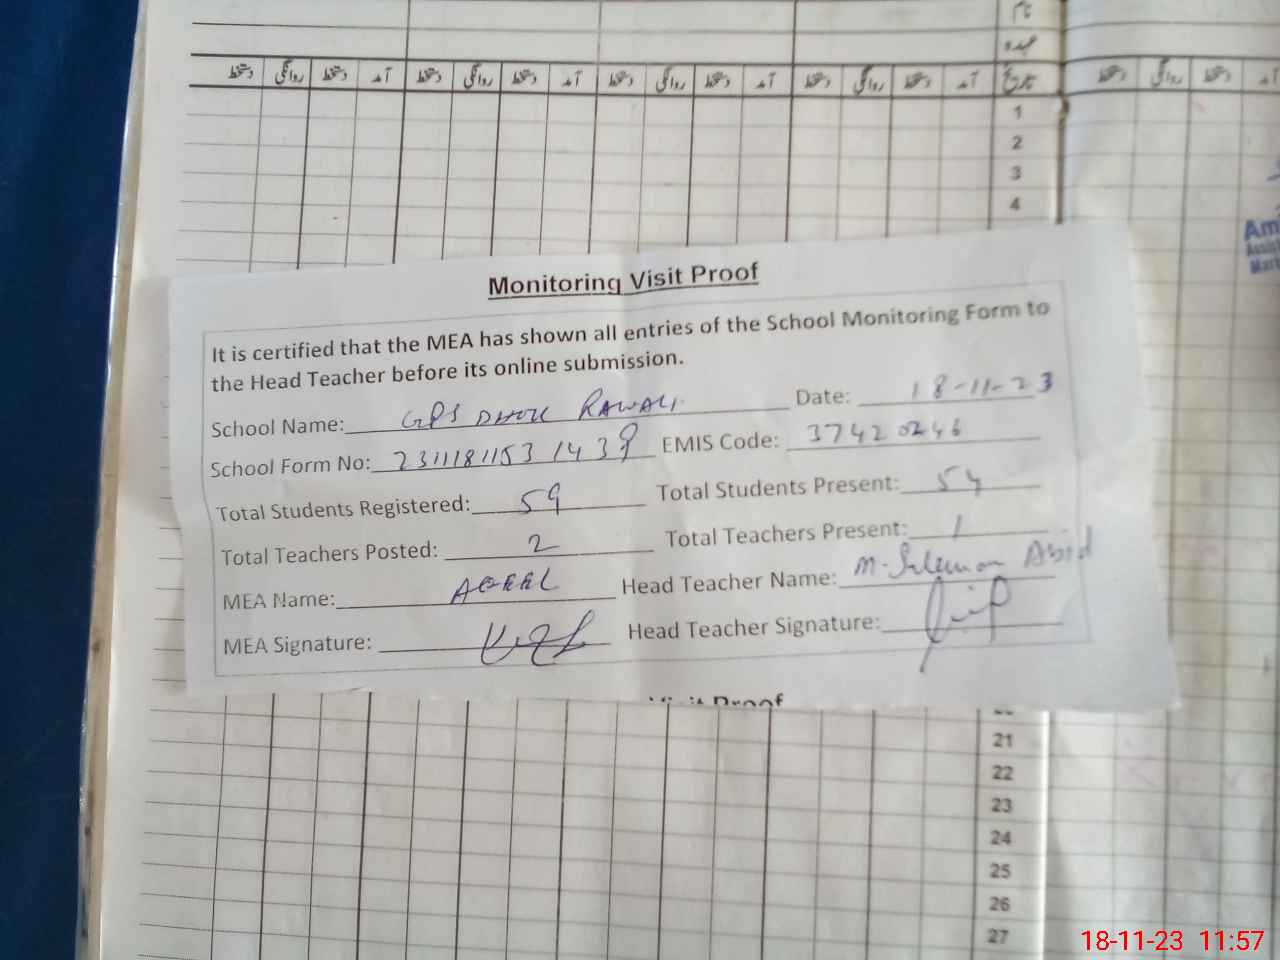 نام
عہدہ
دستخط روانگی دستخط آمد دستخط روانگی دستخط آمد دستخط روانگی دستخط آمد دستخط روانگی دستخط آمد تاریخ دستخط روانگی دستخط آمد
1
2
3
4
Am
Assis
Mar
Monitoring Visit Proof
It is certified that the MEA has shown all entries of the School Monitoring Form to
the Head Teacher before its online submission.
School Name: GPS DHOK RAWALI Date: 18-11-23
School Form No: 2311181153 1439 EMIS Code: 37420246
Total Students Registered: 59 Total Students Present: 54
Total Teachers Posted: 2 Total Teachers Present: 1
MEA Name: Head Teacher Name: M. Suleman Abid
MEA Signature: Head Teacher Signature:
Visit Proof
21
22
23
24
25
26
27
18-11-23 11:57